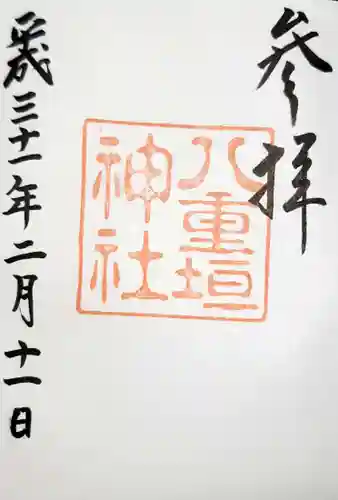 参拝
八重垣
神社
平成三十一年二月十一日